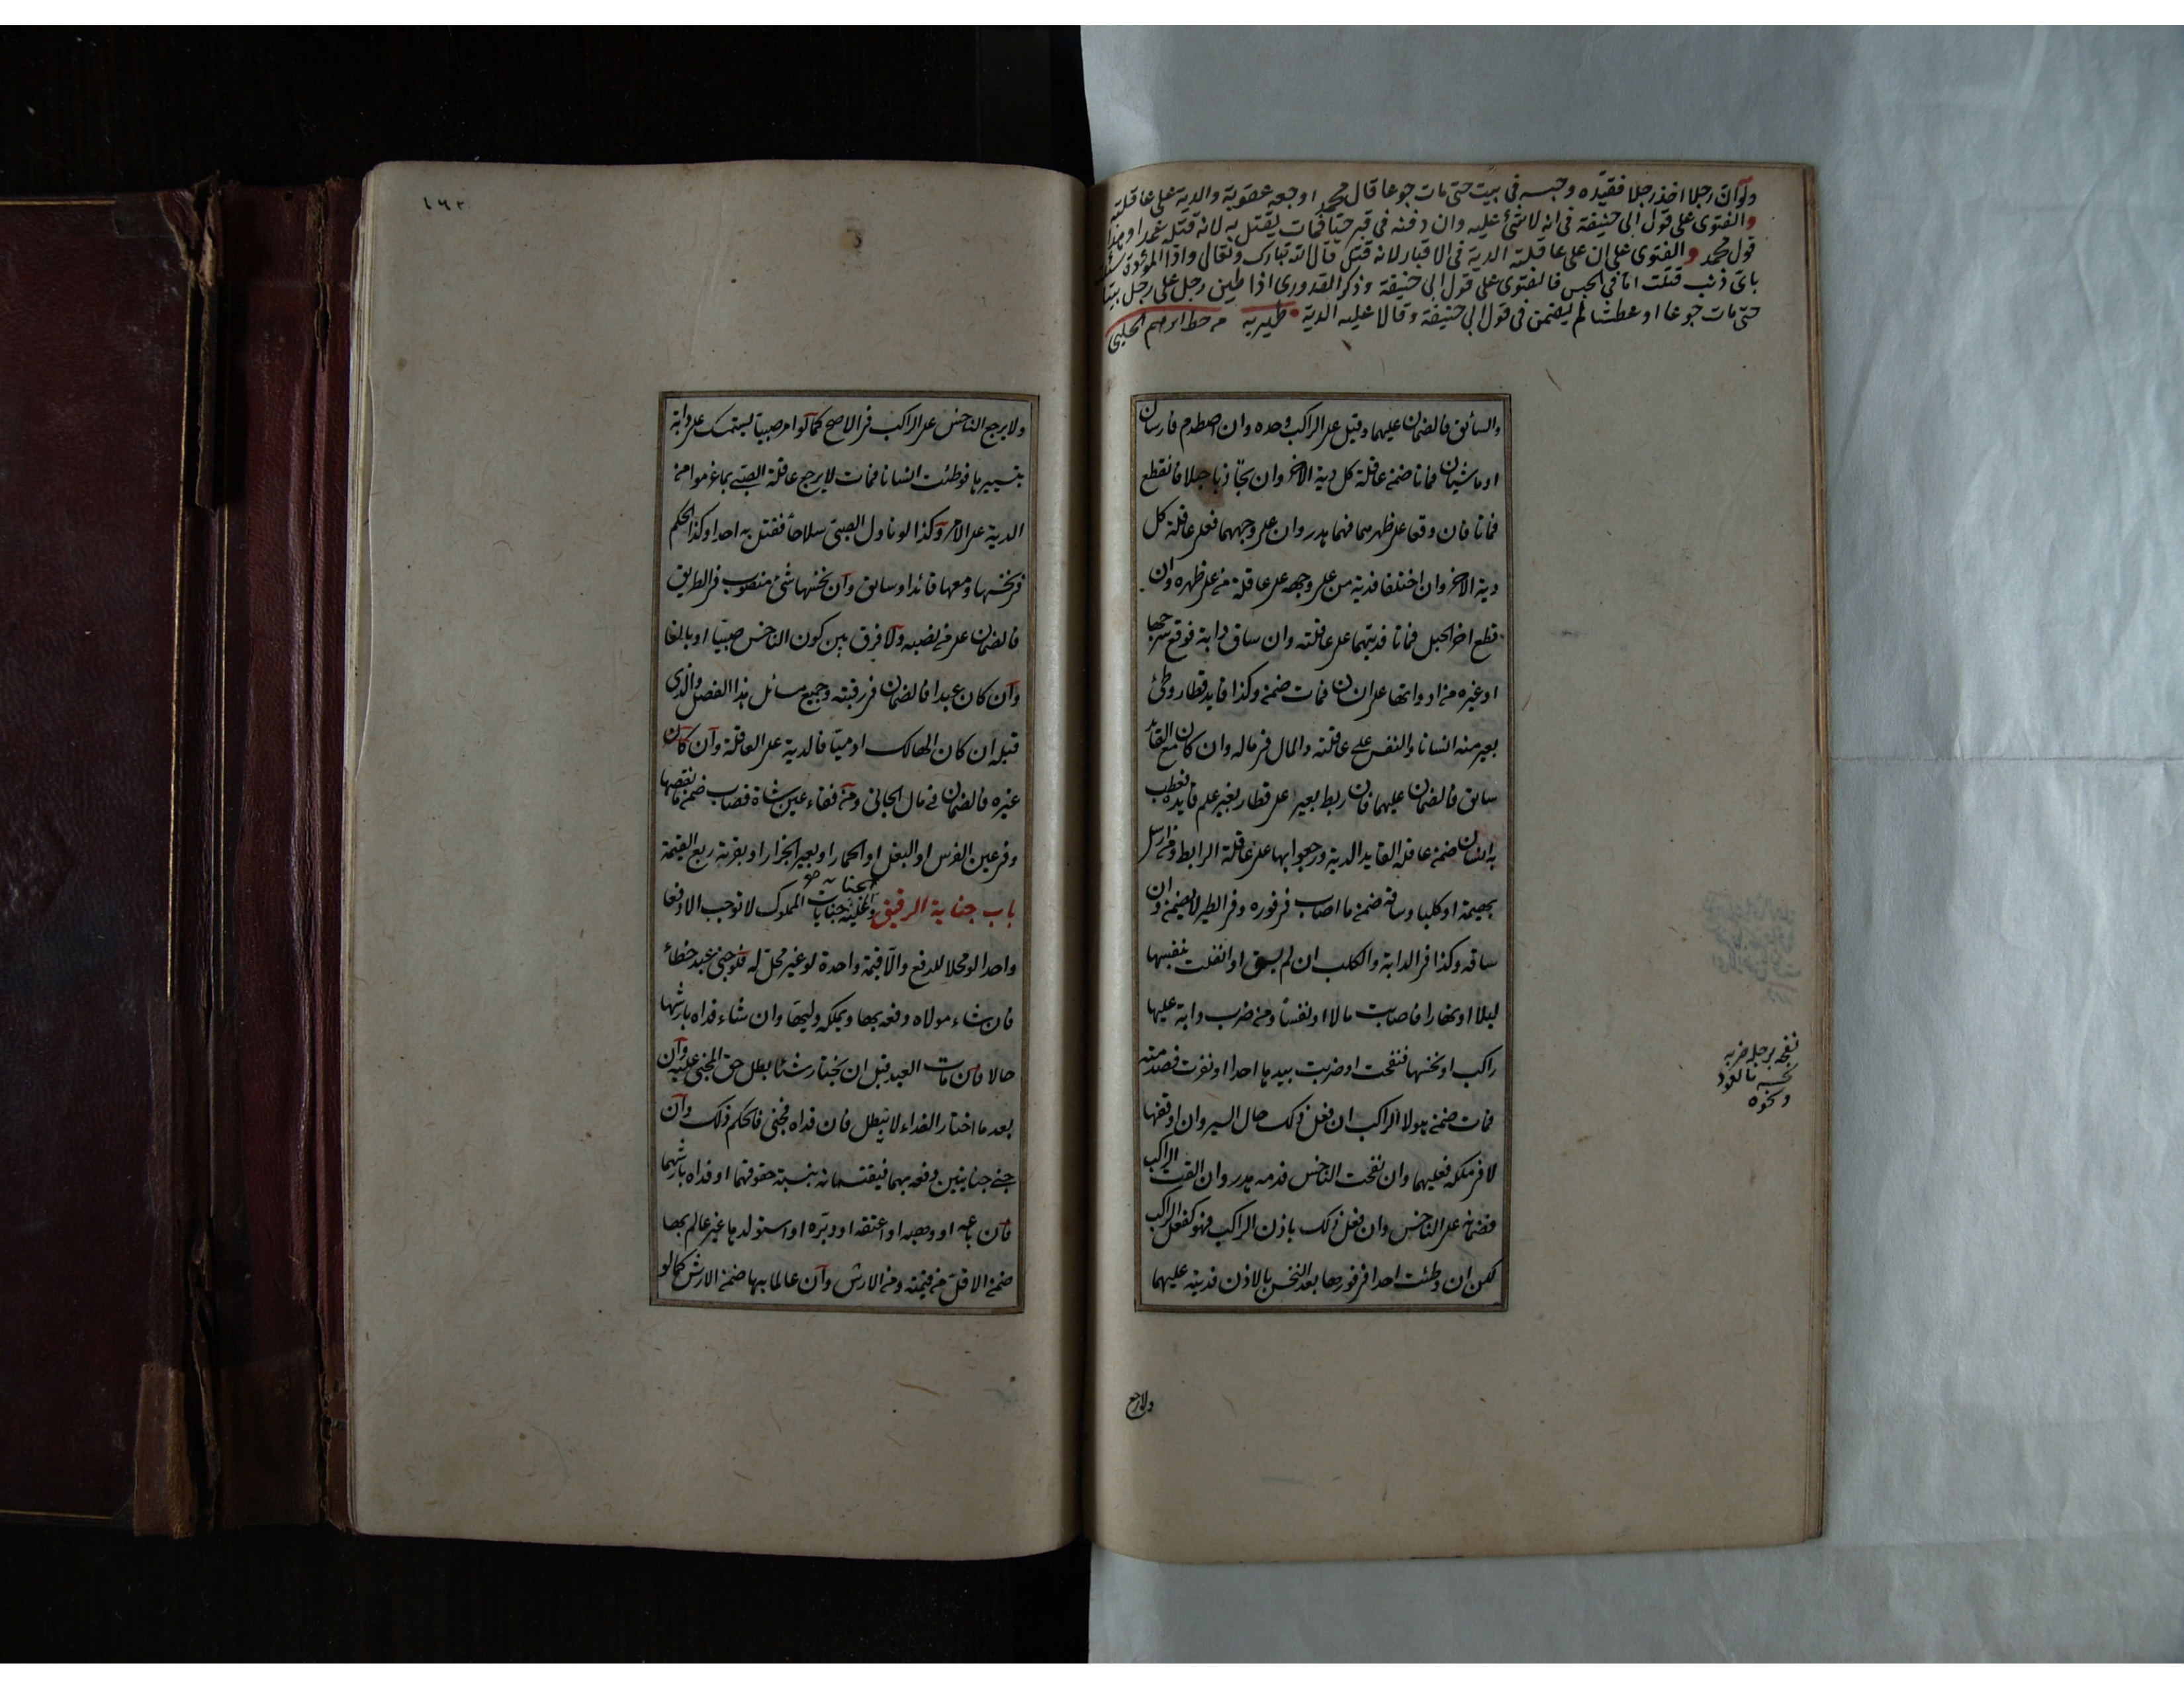 ولو ان رجلا اخذ رجلا فقيده وحبسه فى بيت حتى مات جوعا قال محمد اوجعه عقوبة والدية على عاقلته
والفتوى على قول ابى حنيفة فى انه لا شئ عليه وان دفنه فى قبر حيا فمات يقتل به لانه قتله عمدا وهذا
قول محمد والفتوى على ان على عاقلته الدية فى الاقبار لانه قتل قال الله تبارك وتعالى واذا المؤدة سئلت
باى ذنب قتلت اما فى الحبس فالفتوى على قول ابى حنيفة وذكر القدورى اذا طين رجل على رجل بيتا
حتى مات جوعا او عطشا لم يضمن فى قول ابى حنيفة وقالا عليه الدية ظهيريه من خط ابراهيم الحلبى
والسائق فالضمان عليهما وقيل على الراكب وحده وان اصطدم فارسان
او ماشيان فماتا ضمن عاقلة كل دية الاخر وان تجاذبا حبلا فانقطع
فماتا فان وقعا على ظهرهما فهما هدر وان على وجههما فعلى عاقلة كل
دية الاخر وان اختلفا فدية من على وجهه على عاقلة من على ظهره وان
قطع اخر الحبل فماتا فديتهما على عاقلته وان ساق دابة فوقع سرجها
او غيره من ادواتها على انسان فمات ضمن وكذا قايد قطار وطئ
بعير منه انسانا والنفس على عاقلته والمال فى ماله وان كان مع القائد
سائق فالضمان عليهما فان ربط بعيرا على قطار بغير علم قايده فعطب
به انسان ضمن عاقلة القايد الدية ورجعوا بها على عاقلة الرابط ومن ارسل
بهيمة او كلبا وساقه ضمن ما اصاب فى فوره وفى الطير لا يضمن وان
ساقه وكذا فى الدابة والكلب ان لم يسق او انفلتت بنفسها
ليلا او نهارا فاصابت مالا او نفسا ومن ضرب دابة عليها
راكب او نخسها فنفحت او ضربت بيدها احدا او نفرت فصدمته
فمات ضمن هو لا الراكب ان فعل ذلك حال السير وان اوقفها
لا فى ملكه فعليهما وان نفحت الناخس فدمه هدر وان القت الراكب
فضمانه على الناخس وان فعل ذلك باذن الراكب فهو كفعل الراكب
لكن ان وطئت احدا فى فورها بعد النخس بالاذن فديته عليهما
نفحه برجله ضربه
نخسه بالعود
ونحوه
ولا يرجع
١٦٢
ولا يرجع الناخس على الراكب فى الاصح كما لو امر صبيا يستمسك على دابة
بتسييرها فوطئت انسانا فمات لا يرجع عاقلة الصبى بما غرموا من
الدية على الامر وكذا لو ناول الصبى سلاحا فقتل به احدا وكذا الحكم
فى نخسها ومعها قائد او سابق وان نخسها شئ منصوب فى الطريق
فالضمان على من نصبه ولا فرق بين كون الناخس صبيا او بالغا
وان كان عبدا فالضمان فى رقبته وجميع مسائل هذا الفصل والذى
قبله ان كان الهالك ادميا فالدية على العاقلة وان كان
غيره فالضمان فى مال الجانى ومن فقاء عين شاة قصاب ضمن ما نقصها
وفى عين الفرس او البغل او الحمار او بعير الجزار او بقرته ربع القيمة
باب جناية الرقيق والجناية عليه جنايات المملوك لا توجب الا دفعا
واحدا لو محلا للدفع والا قيمة واحدة لو غير محل له فلو جنى عبد خطأ
فان شاء مولاه دفعه بها ويملكه وليها وان شاء فداه بارشها
حالا فان مات العبد قبل ان يختار شئا بطل حق المجنى عليه وان
بعد ما اختار الفداء لا يبطل فان فداه فجنى فالحكم ذلك وان
جنى جنايتين دفعه بهما فيقتسمانه بنسبة حقوقهما او فداه بارشهما
فان باعه او وهبه او اعتقه او دبره او استولدها غير عالم بها
ضمن الاقل من قيمته ومن الارش وان عالما بها ضمن الارش كما لو